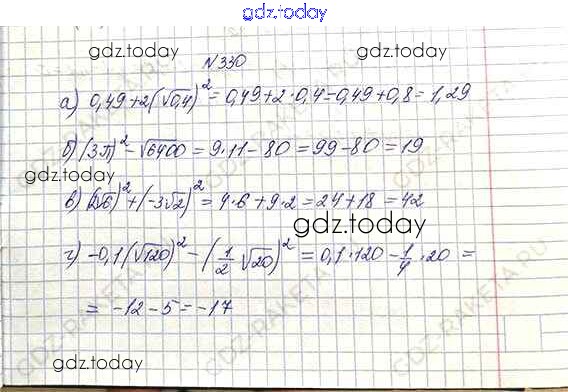 gdz.today
gdz.today gdz.today
№330
а) 0,49+2(√0,4)² = 0,49+2·0,4=0,49+0,8=1,29
б) (3П)² - √6400 = 9·11-80 = 99-80 = 19
gdz.today
в) (2√6)² + (-3√2)² = 4·6+9·2 = 24+18 = 42
gdz.today
г) -0,1(√120)² - (1/2 √20)² = 0,1·120 - 1/4·20 =
= -12-5 = -17
gdz.today
GDZ-RAKETA.RU